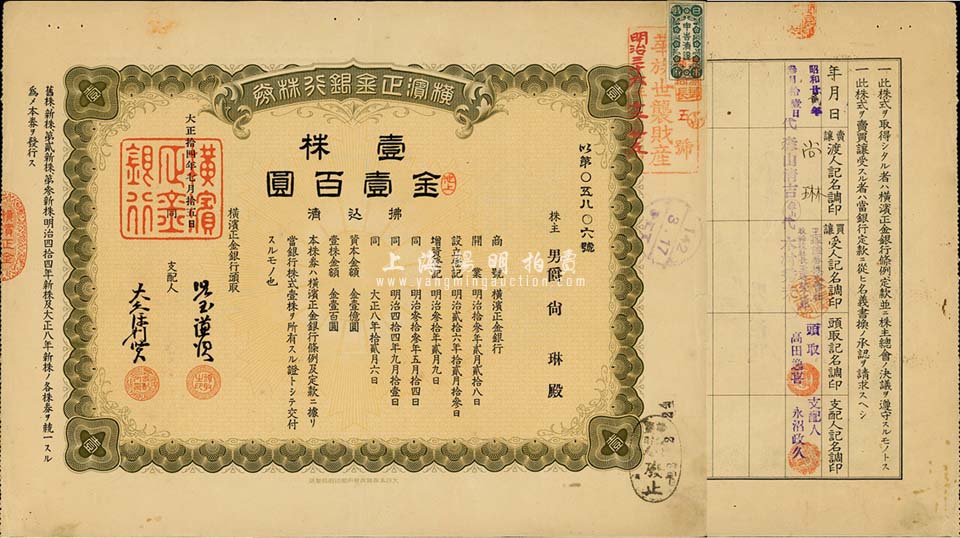 一此株式ヲ取得シタル者ハ橫濱正金銀行條例定款並ニ株主總會ノ決議ヲ遵守スルモノトス
一此株式ヲ賣買讓受スル者ハ當銀行定款ニ從ヒ名義書換ノ承認ヲ請求スヘシ
年月日
賣讓渡人記名調印
買讓受人記名調印
頭取記名調印
支配人記名調印
昭和廿貳年
尚琳
頭取
高田逸喜
支配人
永沼政久
華族世襲財産
五號
橫濱正金銀行株券
以第〇五八〇六號
壹株
金壹百圓
拂込濟
株主 男爵 尚琳殿
商號 橫濱正金銀行
開業 明治拾參年貳月貳拾八日
設立登記 明治貳拾六年拾貳月拾參日
增資登記 明治參拾年貳月九日
同 明治參拾參年五月拾四日
同 明治四拾四年九月拾壹日
同 大正八年拾貳月六日
資本金額 金壹億圓
壹株金額 金壹百圓
本株券ハ橫濱正金銀行條例及定款ニ據リ
當銀行株式壹株ヲ所有スル證トシテ交付
スルモノ也
橫濱正金銀行頭取
同 支配人
大正拾四年七月拾五日
橫濱正金銀行
舊株新株第貳新株第參新株明治四拾四年新株及大正八年新株ノ各株券ヲ統一スル
爲メ本券ヲ發行ス
橫濱正金
廢止
上海陽明拍賣
www.yangmingauction.com